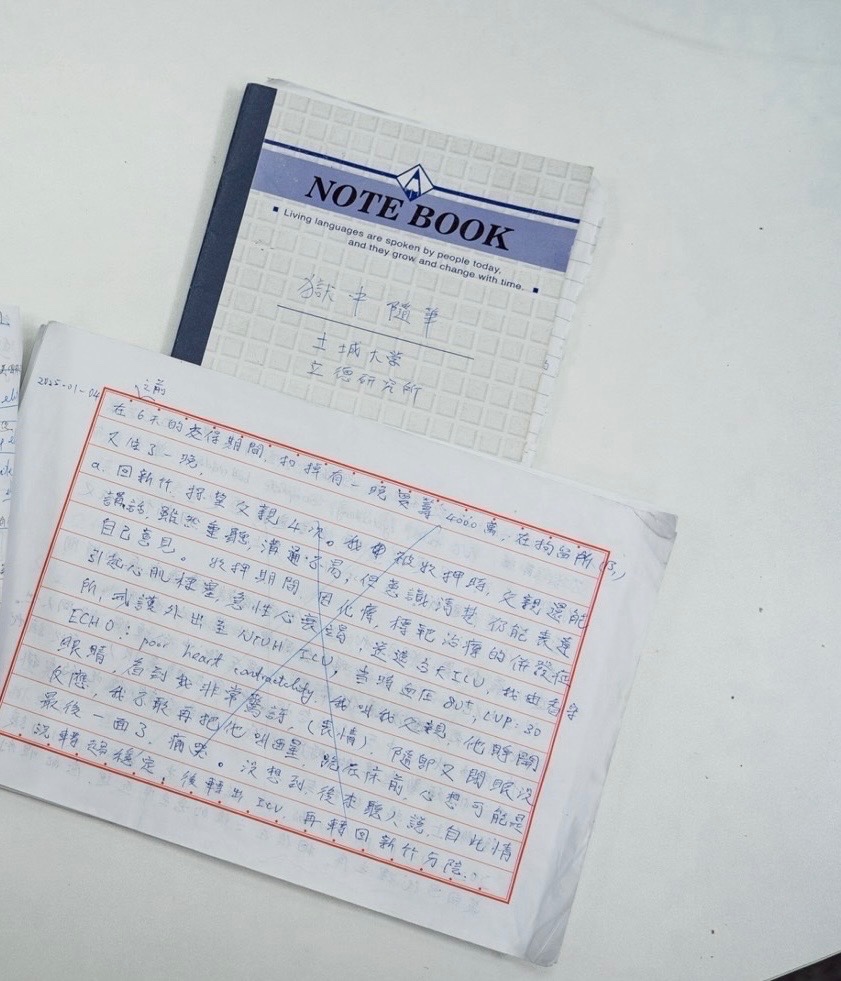 NOTE BOOK
Living languages are spoken by people today,
and they grow and change with time.
獄中隨筆
土城大學
立德研究所
2025-01-04
之前
在6天的交保期間,扣掉有一晚要籌4000萬,在拘留所
又住了一晚,
a. 回新竹 探望父親4次。我 被收押時,父親還能
講話,雖然重聽,溝通不易,但意識清楚仍能表達
自己意見。收押期間 因化療,標靶治療的併發症
引起心肌梗塞,急性心衰竭,送進 ICU,我由看守
所,戒護外出至NTUH ICU,當時血壓80+,LVP:30
ECHO:poor heart contractility 我叫我父親,他睜開
眼睛,看到我非常驚訝(表情),隨即又閉眼沒
反應,我不敢再把他叫醒,跪在床前,心想可能是
最後一面了,痛哭。沒想到,後來聽人說,自此情
況轉趨穩定,後轉出ICU,再轉回新竹分院。